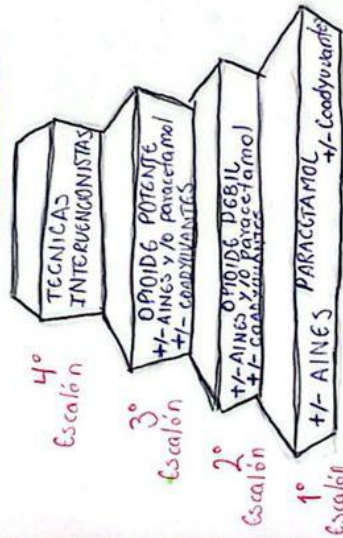 4º
Escalón
TECNICAS
INTERVENCIONISTAS
3º
Escalón
OPIOIDE POTENTE
+/- AINES y/o paracetamol
+/- COADYUVANTES
2º
Escalón
OPIOIDE DEBIL
+/- AINES y/o paracetamol
+/- COADYUVANTES
1º
Escalón
PARACETAMOL
+/- AINES +/- Coadyuvantes